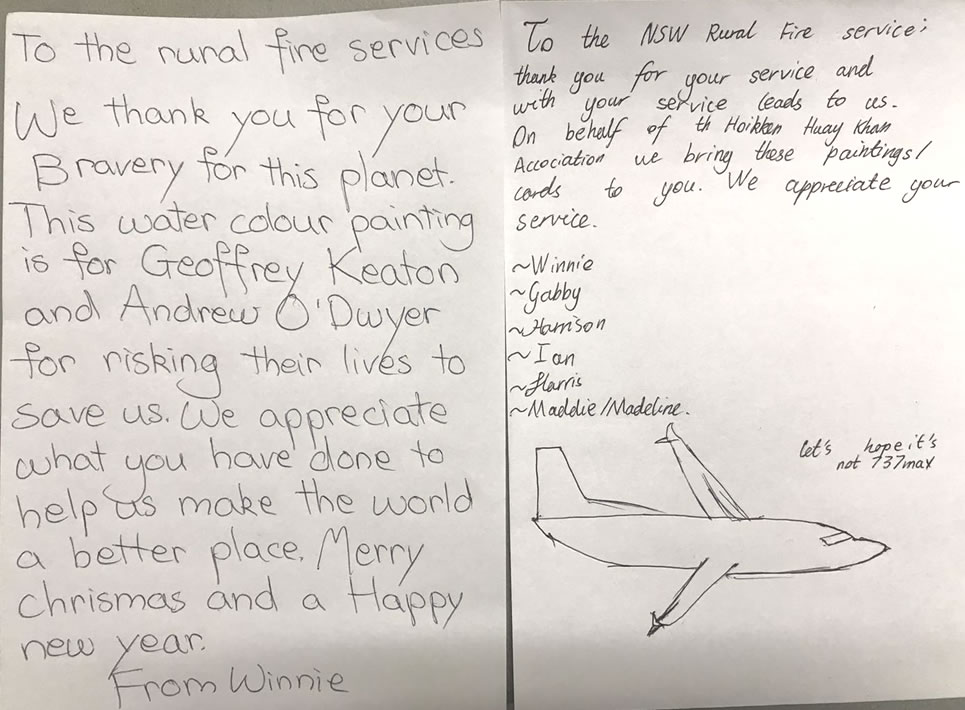 To the rural fire services
We thank you for your
Bravery for this planet.
This water colour painting
is for Geoffrey Keaton
and Andrew O'Dwyer
for risking their lives to
save us. We appreciate
what you have done to
help us make the world
a better place. Merry
chrismas and a Happy
new year.
From Winnie
To the NSW Rural Fire service;
thank you for your service and
with your service leads to us.
On behalf of th Hoikken Huay Khan
Accociation we bring these paintings/
cards to you. We appreciate your
service.
~Winnie
~Gabby
~Harrison
~Ian
~Harris
~Maddie/Madeline.
let's hope it's
not 737max